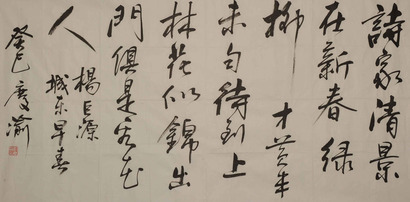 詩家清景
在新春綠
柳才黄半
未匀待到上
林花似錦出
門俱是看花
人
楊巨源
城东早春
癸巳